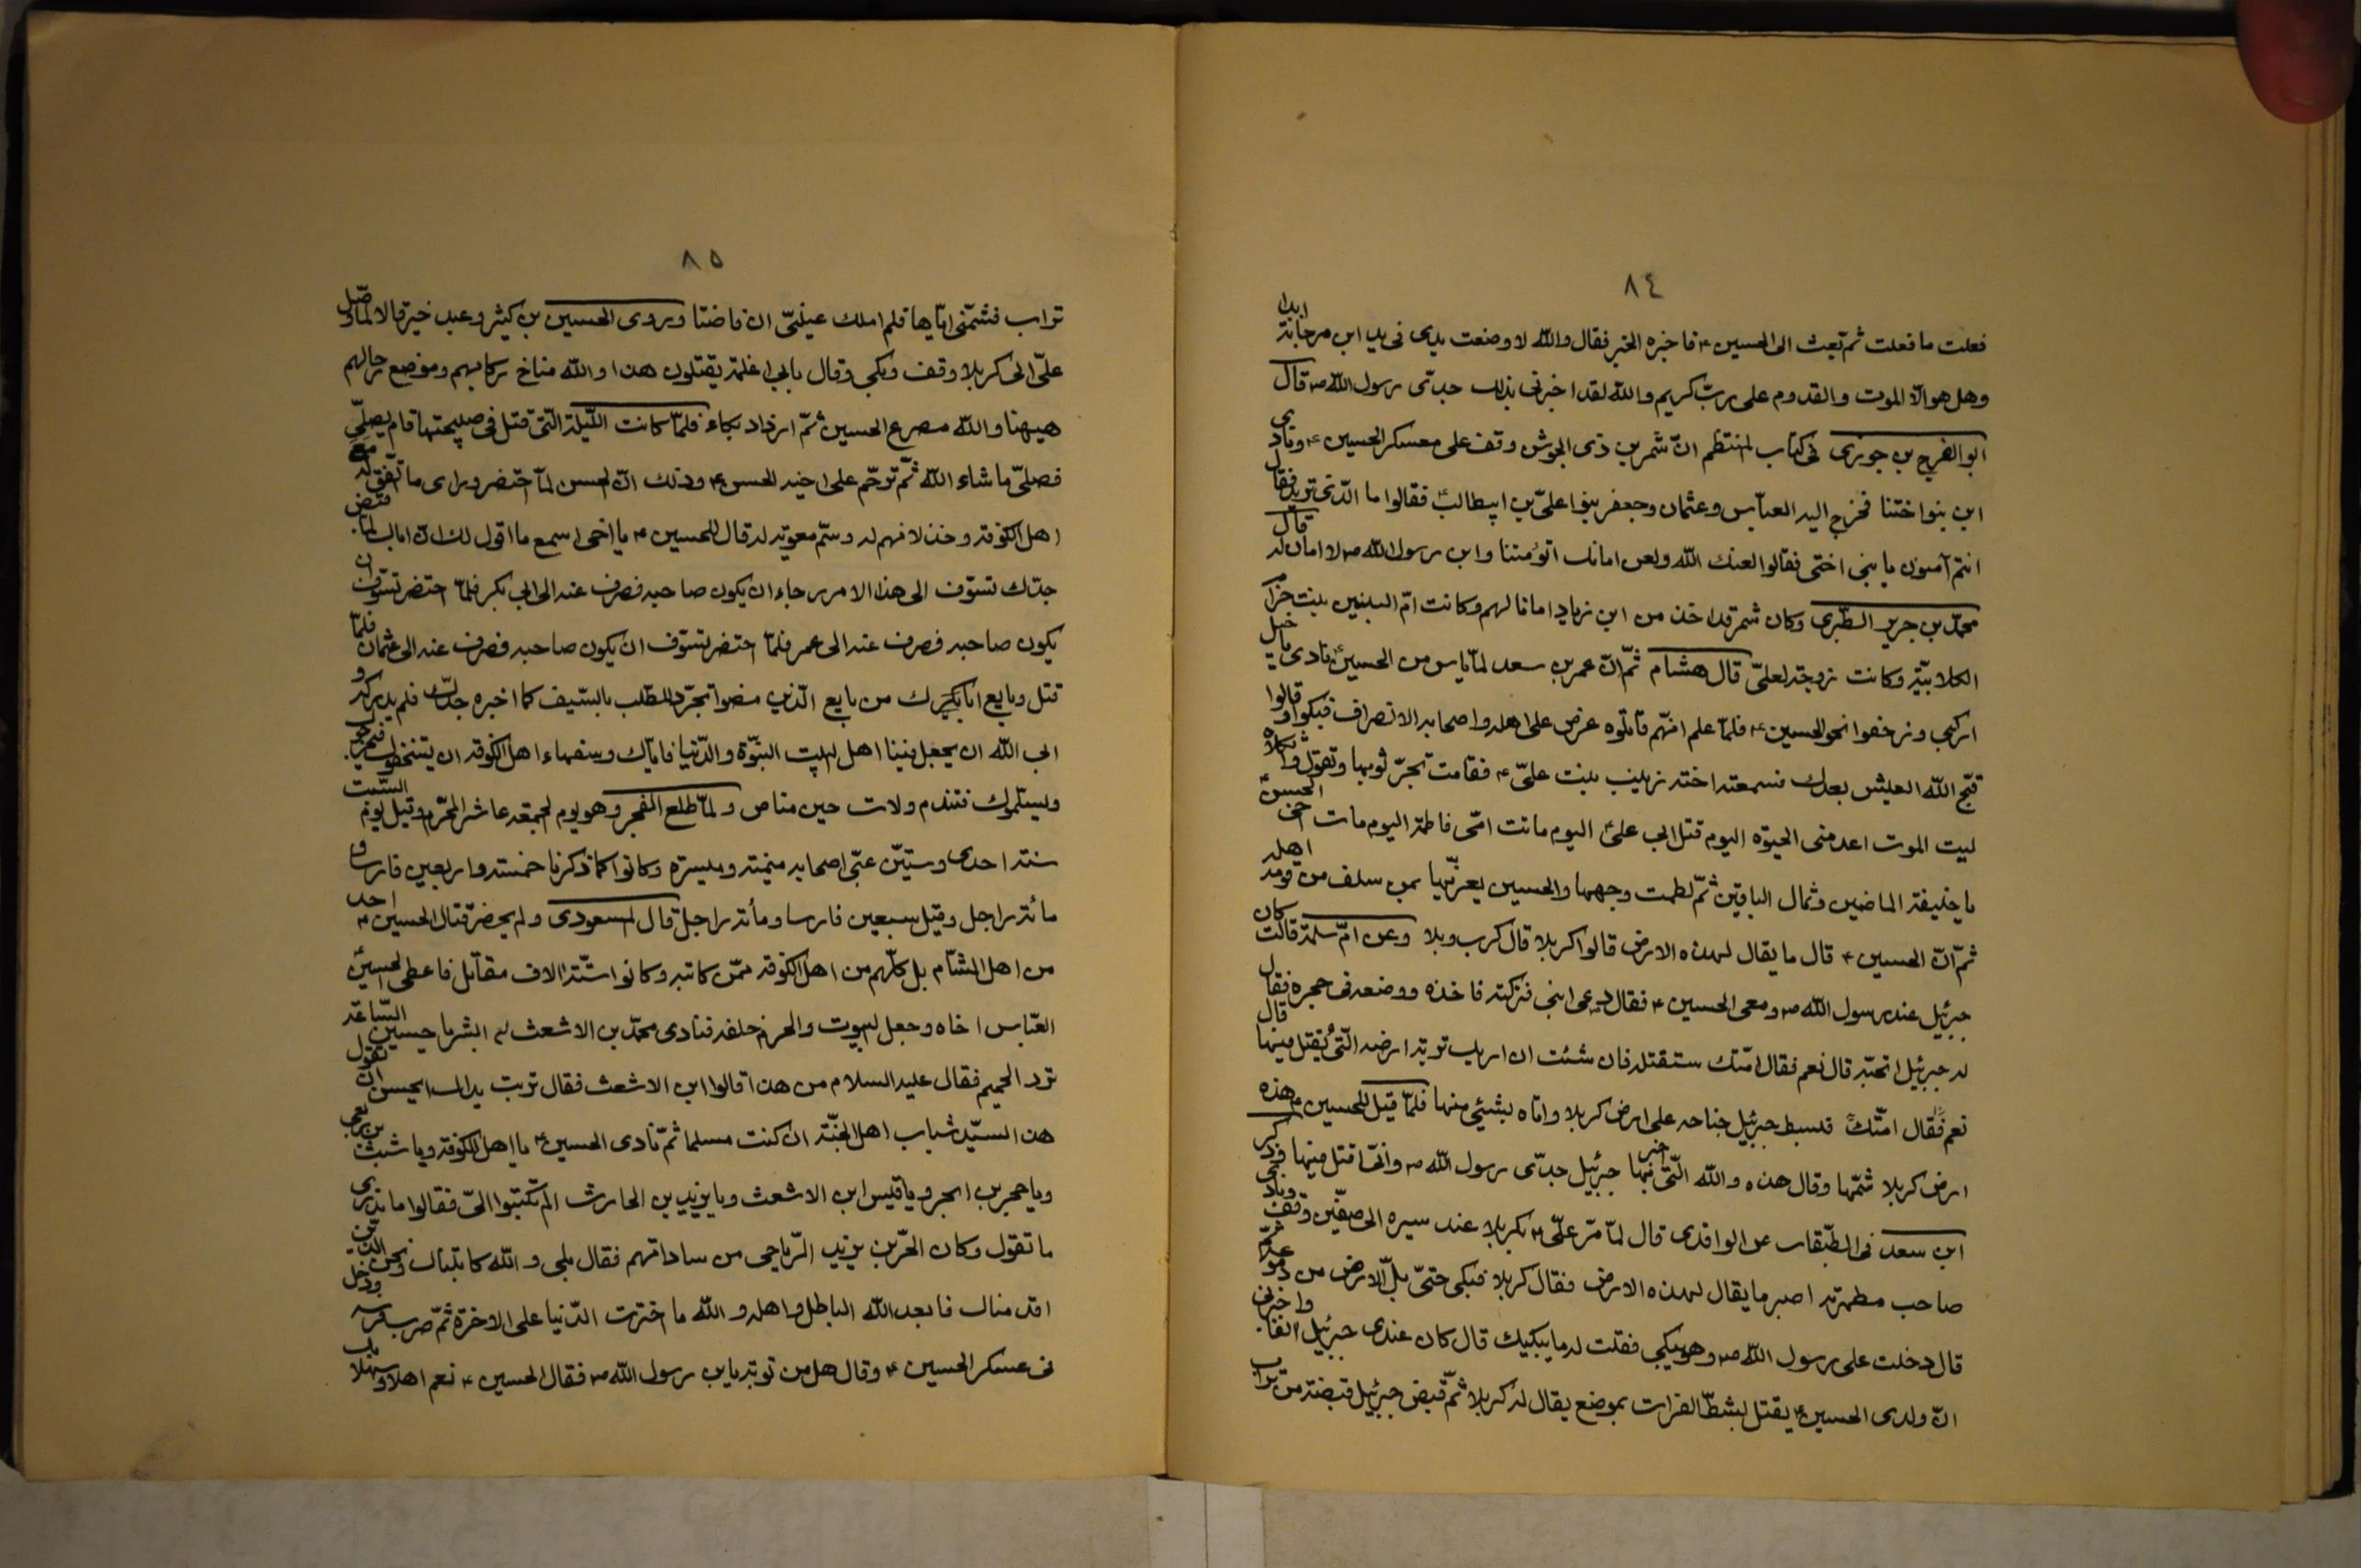 ٨٤
فعلت ما فعلت ثم تبعث الى الحسين ۴ فاخبره الخبر فقال والله لا وضعت يدى فى يد ابن مرجانة ابدا
وهل هو الّا الموت والقدوم على ربّ كريم والله لقد اخبرنى بذلك جدّى رسول الله ص قال
ابو الفرج بن جوزى فى كتاب المنتظم انّ شمر بن ذى الجوش وقف على معسكر الحسين ۴ ونادى
اين بنوا ختنا فخرج اليه العبّاس وعثمان وجعفر بنوا علىّ بن ابيطالب فقالوا ما الّذى تريد فقال
انتم آمنون يا بنى اختى فقالوا لعنك الله ولعن امانك اتؤمننا وابن رسول الله ص لا امان له قال
محمّد بن جرير الطّبرى وكان شمر قد اخذ من ابن زياد امانا لهم وكانت امّ البنين بنت حزام
الكلابيّة وكانت زوجة لعلىّ قال هشام ثمّ انّ عمر بن سعد لمّا يأس من الحسين نادى يا خيل
اركبى وزحفوا نحو الحسين ۴ فلمّا علم انّهم قاتلوه عرض على اهله واصحابه الانصراف فبكوا وقالوا
قبّح الله العيش بعدك فسمعته اخته زينب بنت علىّ ۴ فقامت تجرّ ثوبها وتقول واثكلاه
ليت الموت اعدمنى الحيوة اليوم قتل ابى علىّ اليوم ماتت امّى فاطمة اليوم مات اخى الحسن
يا خليفة الماضين وثمال الباقين ثمّ لطمت وجهها والحسين يعزّيها بمن سلف من قومه اهله
ثمّ انّ الحسين ۴ قال ما يقال لهذه الارض قالوا كربلا قال كرب وبلا وعن امّ سلمة قالت كان
جبرئيل عند رسول الله ص ومعى الحسين ۴ فقال دعى ابنى فتركته فاخذه ووضعه فى حجره فقال
له جبرئيل اتحبّه قال نعم فقال امّتك ستقتله فان شئت ان اريك تربة ارضه الّتى يُقتل فيها قال
نعم فقال امّتك فبسط جبرئيل جناحه على ارض كربلا واتاه بشيئى منها فلمّا قيل للحسين ۴ هذه
ارض كربلا شمّها وقال هذه والله الّتى اخبر بها جبرئيل جدّى رسول الله ص وانّى اقتل فيها وذكر
ابن سعد فى الطّبقات عن الواقدى قال لمّا مرّ علىّ ۴ بكربلا عند سيره الى صفّين وقف ونادى
صاحب مطهرته اصبر ما يقال لهذه الارض فقال كربلا فبكى حتّى بلّ الارض من دموعه ثمّ
قال دخلت على رسول الله ص وهو يبكى فقلت له ما يبكيك قال كان عندى جبرئيل انفا واخبرنى
انّ ولدى الحسين يقتل بشطّ الفرات بموضع يقال له كربلا ثمّ قبض جبرئيل قبضة من تراب
٨٥
تراب فشمّنى ايّاها فلم املك عينىّ ان فاضتا وروى الحسين بن كثير وعبد خير قالا لمّا وصل
علىّ الى كربلا وقف وبكى وقال بابى اغلمة يقتلون هذا والله مناخ ركابهم وموضع رحالهم
هيهنا والله مصرع الحسين ثمّ ازداد بكاء فلمّا كانت اللّيلة الّتى قتل فى صبيحتها قام يصلّى
فصلّى ما شاء الله ثمّ ترحّم على اخيه الحسن ۴ وذلك انّ الحسن لمّا احتضر وراى ما اتّفق له مع
اهل الكوفة وخذلانهم له وسمّ معوية له قال للحسين ۴ يا اخى اسمع ما اقول لك انّ اباك لمّا قبض
جدّك تسوّف الى هذا الامر رجاء ان يكون صاحبه فصرف عنه الى ابى بكر فلمّا احتضر تسوّف ان
يكون صاحبه فصرف عنه الى عمر فلمّا احتضر تسوّف ان يكون صاحبه فصرف عنه الى عثمان فلمّا
قتل وبايع من بايع الّذين مضوا تجرّد للطّلب بالسّيف كما اخبره جدّك فلم يدركه و
ابى الله ان يجعل فينا اهل البيت النبوّة والدّنيا فايّاك وسفهاء اهل الكوفة ان يستخفّوك فيخرجوك
وليسلموك فتندم ولات حين مناص ولمّا طلع الفجر وهو يوم الجمعة عاشر المحرّم وقيل يوم السّبت
سنة احدى وستّين عبّى اصحابه ميمنة وميسرة وكانوا كما ذكرنا خمسة واربعين فارسا و
مائة راجل وقيل سبعين فارسا ومأة راجل قال المسعودى ولم يحضر قتال الحسين ۴ احد
من اهل الشّام بل كلّهم من اهل الكوفة ممّن كاتبه وكانوا ستّة الاف مقاتل فاعطى الحسين
العبّاس اخاه وجعل البيوت والحرم خلفه فنادى محمّد بن الاشعث ابشر يا حسين السّاعة
ترد الجحيم فقال عليه السلام من هذا قالوا ابن الاشعث فقال تربت يداك
هذا السيّد شباب اهل الجنّة ان كنت مسلما ثمّ نادى الحسين ۴ يا اهل الكوفة ويا شبث بن ربعى
ويا حجر بن ابجر ويا قيس ابن الاشعث ويا يزيد بن الحارث الم تكتبوا الىّ فقالوا ما ندرى
ما تقول وكان الحرّ بن يزيد الرّياحى من ساداتهم فقال بلى والله كاتبناك ونحن الّذين
اقدمناك فابعد الله الباطل واهله والله ما اخترت الدّنيا على الاخرة ثمّ ضرب فرسه ودخل
فى عسكر الحسين ۴ وقال هل من توبة يا بن رسول الله ص فقال الحسين ۴ نعم اهلا وسهلا